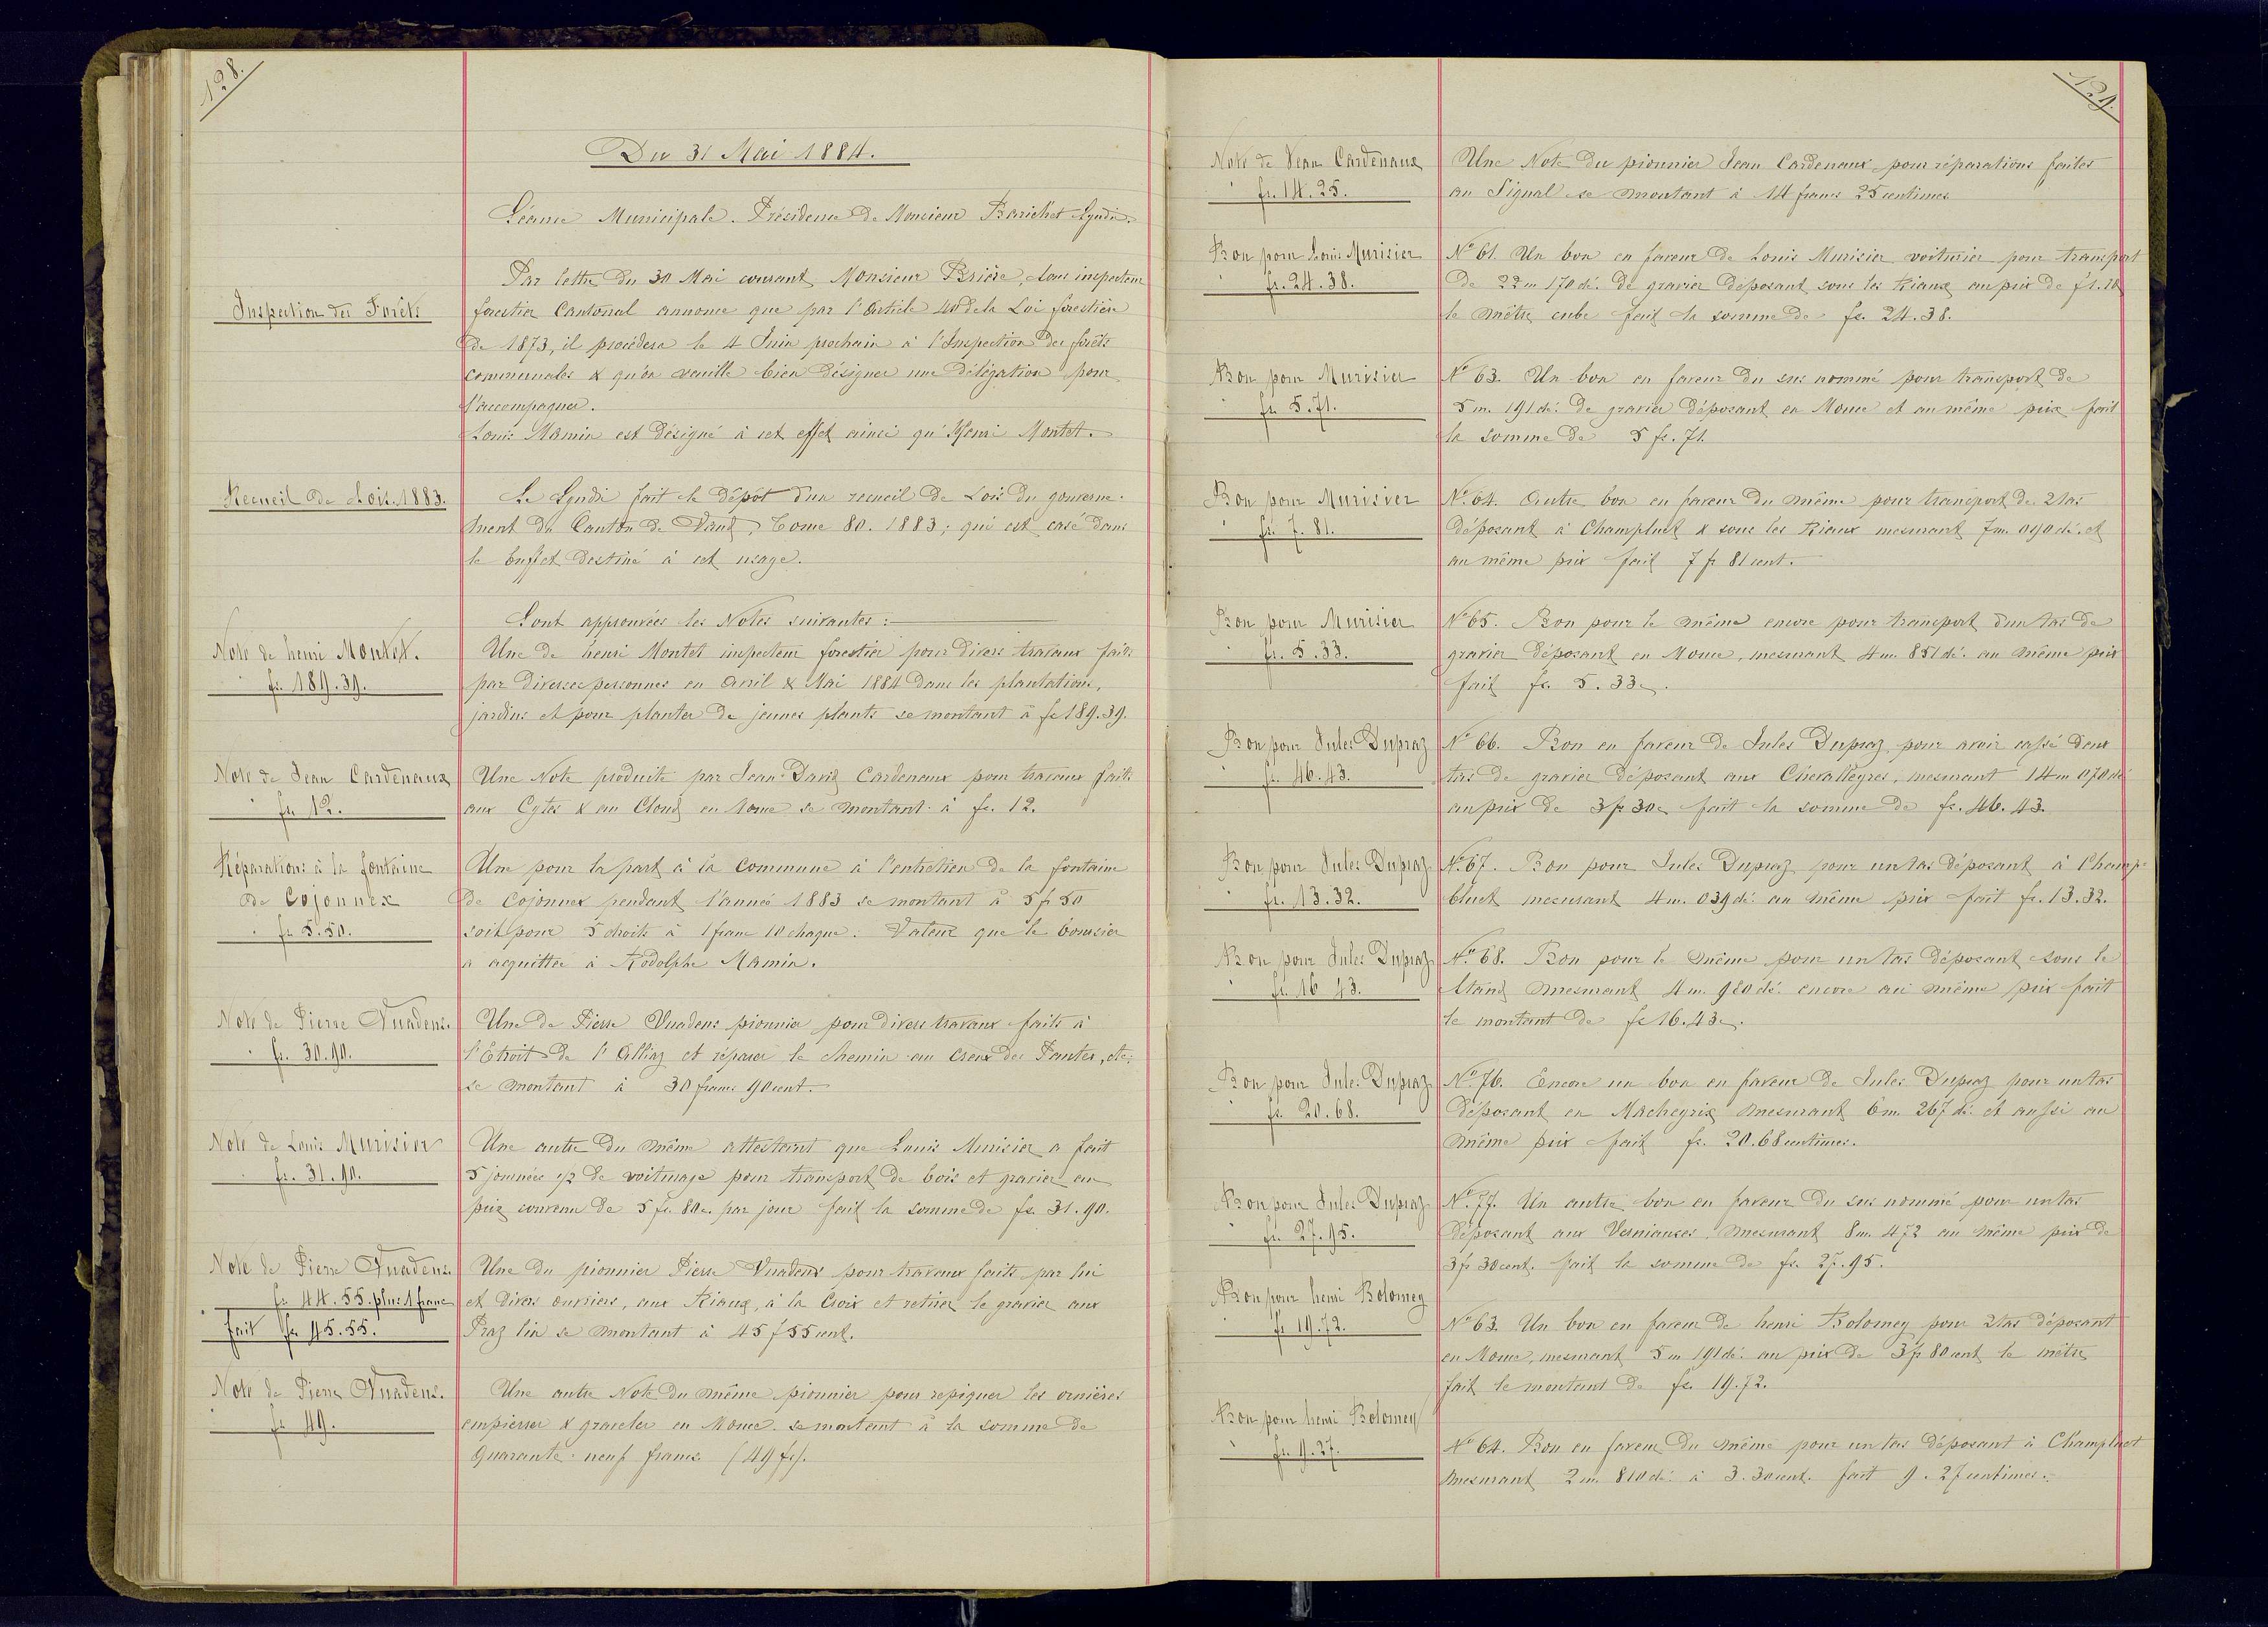 128.
Du 31 Mai 1884.
Séance Municipale. Présidence de Monsieur Barichet Syndic.
Inspection des Forêts
Par lettre du 30 Mai courant, Monsieur Brière, sous inspecteur
forestier Cantonal annonce que par l'Article 40 de la Loi forestière
de 1873, il procédera le 4 Juin prochain à l'Inspection des forêts
communales & qu'on veuille bien désigner une délégation pour
l'accompagner.
Louis Mamin est désigné à cet effet ainsi qu'Henri Montet.
Recueil de Lois. 1883.
Le Syndic fait le dépôt d'un recueil de Lois du gouverne-
ment du Canton de Vaud, Tome 80. 1883; qui est casé dans
le buffet destiné à cet usage.
Sont approuvées les Notes suivantes:
Note de henri Montet.
fr. 189.39.
Une de henri Montet inspecteur forestier pour divers travaux faits
par diverses personnes en Avril & Mai 1884 dans les plantations,
jardins et pour planter de jeunes plants se montant à fr 189.39.
Note de Jean Cardenaux
fr. 12.
Une Note produite par Jean-David Cardenaux pour travaux faits
aux Cytes & au Cloud en Mouce se montant à fr. 12.
Réparations à la fontaine
de Cojonnex
fr. 5.50.
Une pour la part à la Commune à l'entretien de la fontaine
de Cojonnex pendant l'année 1883 se montant à 5 fr 50
soit pour 5 droits à 1 franc 10 chaque. Valeur que le boursier
a acquittée à Rodolphe Mamin.
Note de Pierre Vuadens.
fr. 30.90.
Une de Pierre Vuadens pionnier pour divers travaux faits à
l'Etroit de l'Alliaz et réparer le chemin au Creux des Pautex, etc.
se montant à 30 francs 90 cent.
Note de Louis Murisier
fr. 31.90.
Une autre du même attestant que Louis Murisier a fait
5 journées 1/2 de voiturage pour transport de bois et gravier au
prix convenu de 5 fr. 80c. par jour fait la somme de fr. 31.90.
Note de Pierre Vuadens.
fr 44.55. plus 1 franc
fait fr. 45.55.
Une du pionnier Pierre Vuadens pour travaux faits par lui
et divers ouvriers, aux Riaux, à la Croix et retirer le gravier aux
Praz lin se montant à 45 f 55 cent.
Note de Pierre Vuadens.
fr 49.
Une autre Note du même pionnier pour repiquer les ornières
empierrer & graveler en Mouce se montant à la somme de
Quarante-neuf francs (49 fr).
129.
Note de Jean Cardenaux
fr. 14.25.
Une Note du pionnier Jean Cardenaux pour réparations faites
au Signal se montant à 14 francs 25 centimes
Bon pour Louis Murisier
fr. 24.38.
No 61. Un bon en faveur de Louis Murisier voiturier pour transport
de 22 m 170 dé. de gravier déposant sous les Riaux au prix de f 1.10
le mètre cube fait la somme de fr. 24.38.
Bon pour Murisier
fr. 5.71.
No 63. Un bon en faveur du sus nommé pour transport de
5 m. 191 dé. de gravier déposant en Mouce et au même prix fait
la somme de 5 fr. 71.
Bon pour Murisier
fr. 7.81.
No 64. Autre bon en faveur du même pour transport de 2 tas
déposant à Champluet & sous les Riaux mesurant 7 m. 090 dé. et
au même prix fait 7 fr 81 cent.
Bon pour Murisier
fr. 5.33.
No 65. Bon pour le même encore pour transport d'un tas de
gravier déposant en Mouce, mesurant 4 m. 851 dé. au même prix
fait fr. 5.33c.
Bon pour Jules Dupraz
fr. 46.43.
No 66. Bon en faveur de Jules Dupraz pour avoir cassé deux
tas de gravier déposant aux Chevalleyres, mesurant 14 m 070 dé
au prix de 3 fr 30c fait la somme de fr. 46.43.
Bon pour Jules Dupraz
fr. 13.32.
No 67. Bon pour Jules Dupraz pour un tas déposant à Champ-
bluet mesurant 4 m. 039 dé. au même prix fait fr. 13.32.
Bon pour Jules Dupraz
fr. 16 43.
No 68. Bon pour le même pour un tas déposant sous le
Stand mesurant 4 m. 980 dé. encore au même prix fait
le montant de fr 16.43c.
Bon pour Jules Dupraz
fr. 20.68.
No 76. Encore un bon en faveur de Jules Dupraz pour un tas
déposant en Macheyrix mesurant 6 m. 267 dé. et aussi au
même prix fait fr. 20.68 centimes.
Bon pour Jules Dupraz
fr. 27.95.
No 77. Un autre bon en faveur du sus nommé pour un tas
déposant aux Verniauses, mesurant 8 m. 472 au même prix de
3 fr 30 cent. fait la somme de fr. 27.95.
Bon pour henri Bolomey
fr 19.72.
No 63. Un bon en faveur de henri Bolomey pour 2 tas déposant
en Mouce, mesurant 5 m 191 dé. au prix de 3 fr 80 cent le mètre
fait le montant de fr. 19.72.
Bon pour henri Bolomey
fr. 9.27.
No 64. Bon en faveur du même pour un tas déposant à Champluet
mesurant 2 m. 810 dé. à 3.30 cent. fait 9.27 centimes.